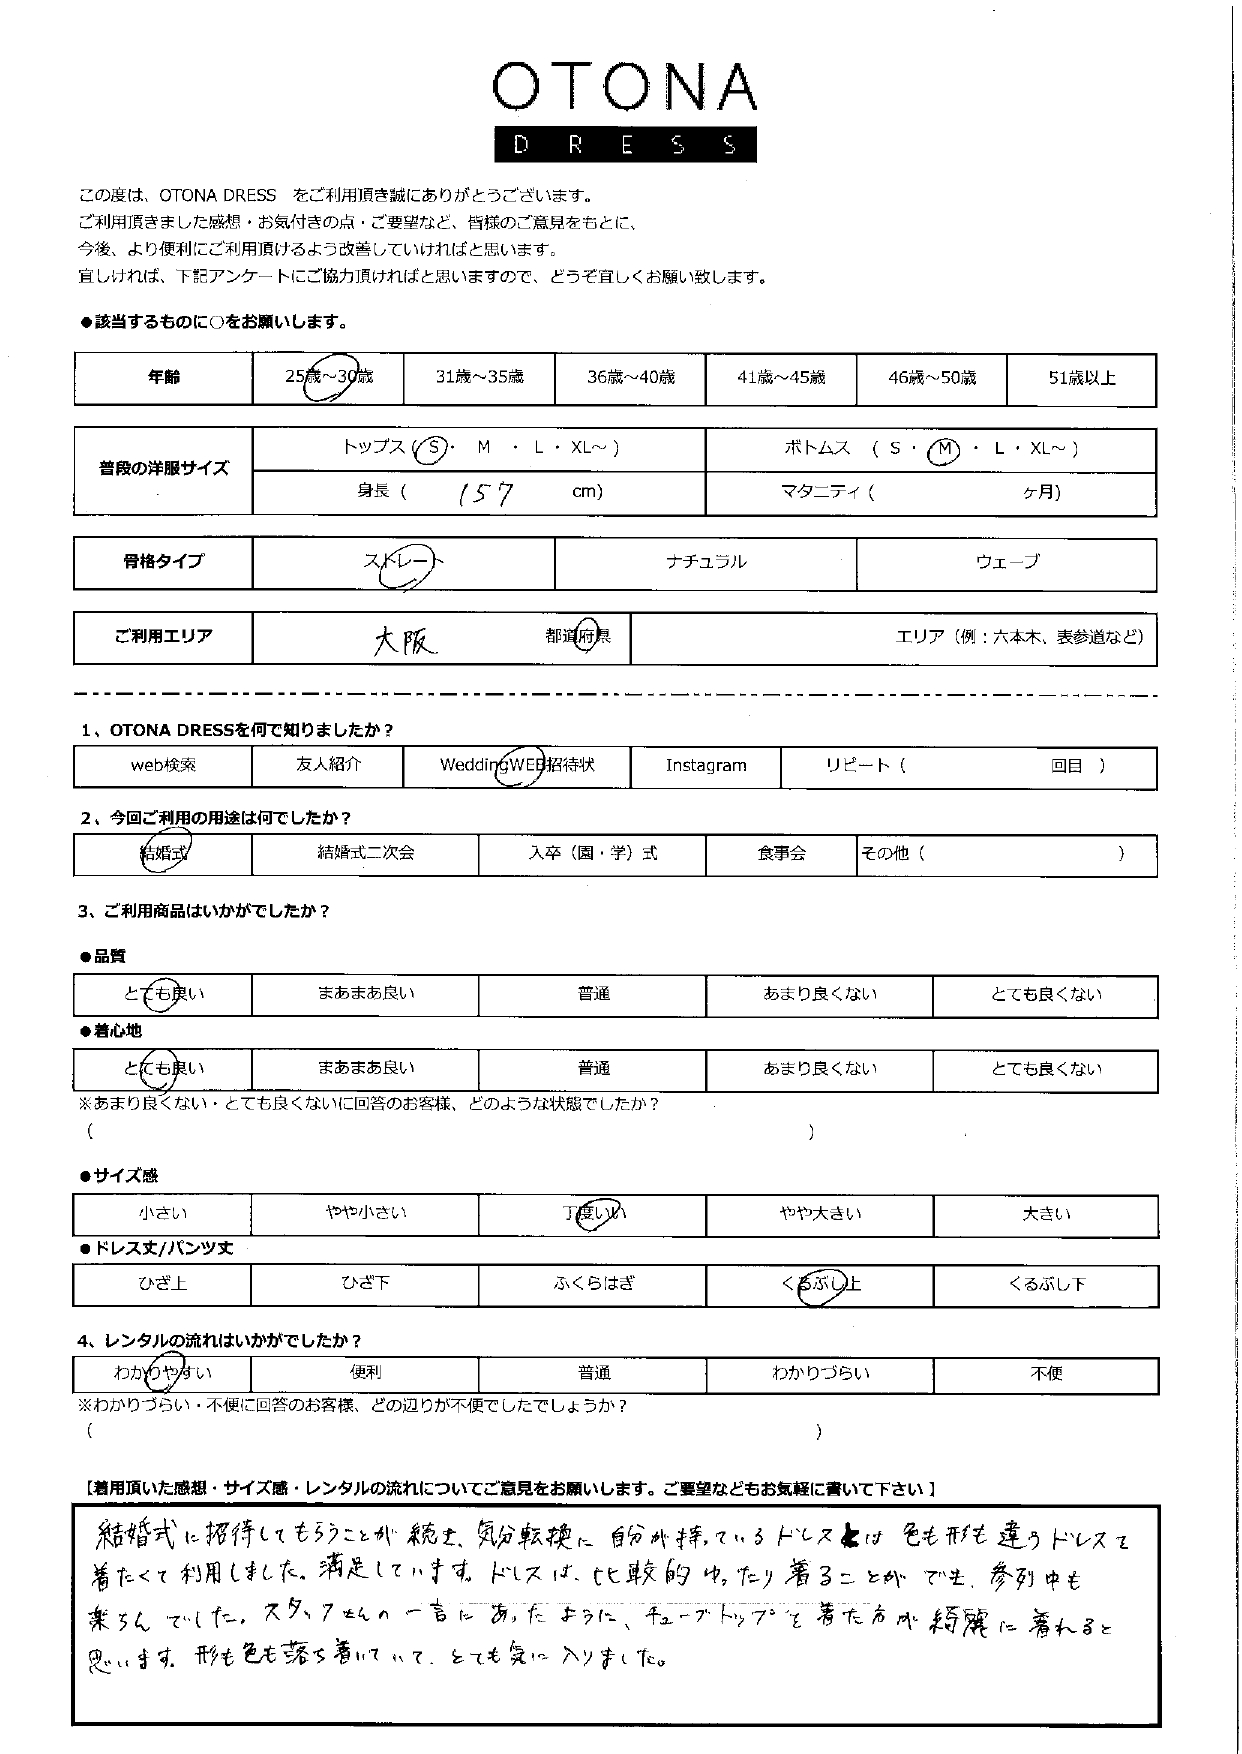 OTONA
DRESS
この度は、OTONA DRESS　をご利用頂き誠にありがとうございます。
ご利用頂きました感想・お気付きの点・ご要望など、皆様のご意見をもとに、
今後、より便利にご利用頂けるよう改善していければと思います。
宜しければ、下記アンケートにご協力頂ければと思いますので、どうぞ宜しくお願い致します。
●該当するものに○をお願いします。
年齢 25歳～30歳 31歳～35歳 36歳～40歳 41歳～45歳 46歳～50歳 51歳以上
普段の洋服サイズ トップス ( S ・ M ・ L ・ XL～ ) ボトムス ( S ・ M ・ L ・ XL～ )
身長 ( 157 cm) マタニティ ( ケ月)
骨格タイプ ストレート ナチュラル ウェーブ
ご利用エリア 大阪 都道府県 エリア（例：六本木、表参道など）
1、OTONA DRESSを何で知りましたか？
web検索 友人紹介 WeddingWEB招待状 Instagram リピート（ 回目 ）
2、今回ご利用の用途は何でしたか？
結婚式 結婚式二次会 入卒（園・学）式 食事会 その他（ ）
3、ご利用商品はいかがでしたか？
●品質
とても良い まあまあ良い 普通 あまり良くない とても良くない
●着心地
とても良い まあまあ良い 普通 あまり良くない とても良くない
※あまり良くない・とても良くないに回答のお客様、どのような状態でしたか？
（ ）
●サイズ感
小さい やや小さい 丁度いい やや大きい 大きい
●ドレス丈/パンツ丈
ひざ上 ひざ下 ふくらはぎ くるぶし上 くるぶし下
4、レンタルの流れはいかがでしたか？
わかりやすい 便利 普通 わかりづらい 不便
※わかりづらい・不便に回答のお客様、どの辺りが不便でしたでしょうか？
（ ）
【着用頂いた感想・サイズ感・レンタルの流れについてご意見をお願いします。ご要望などもお気軽に書いて下さい】
結婚式に招待してもらうことが続き、気分転換に自分が持っているドレスとは色も形も違うドレスを
着たくて利用しました。満足しています。ドレスは、比較的ゆったり着ることができ、参列中も
楽ちんでした。スタッフさんの一言にあったように、チューブトップを着た方が綺麗に着れると
思います。形も色も落ち着いていて、とても気に入りました。